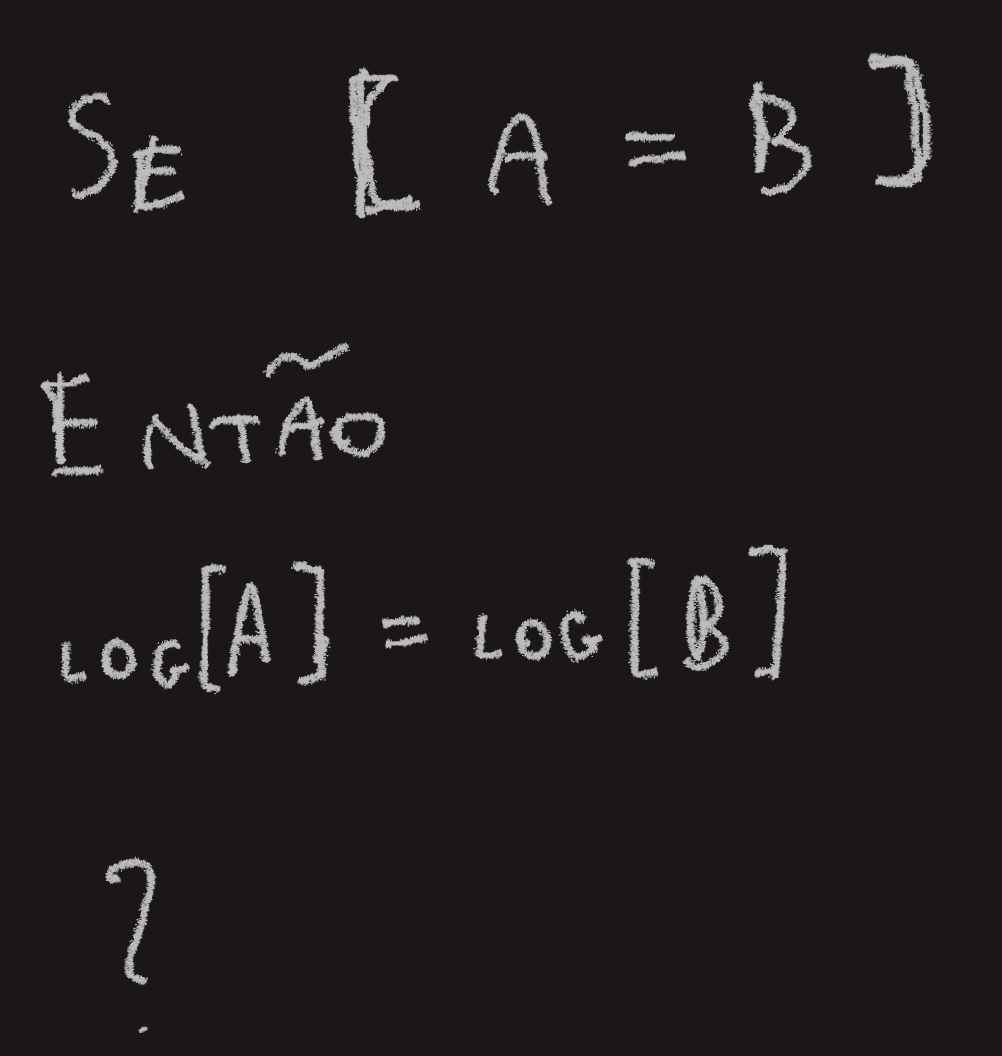 SE [ A = B ]
ENTÃO
LOG[A] = LOG[B]
?